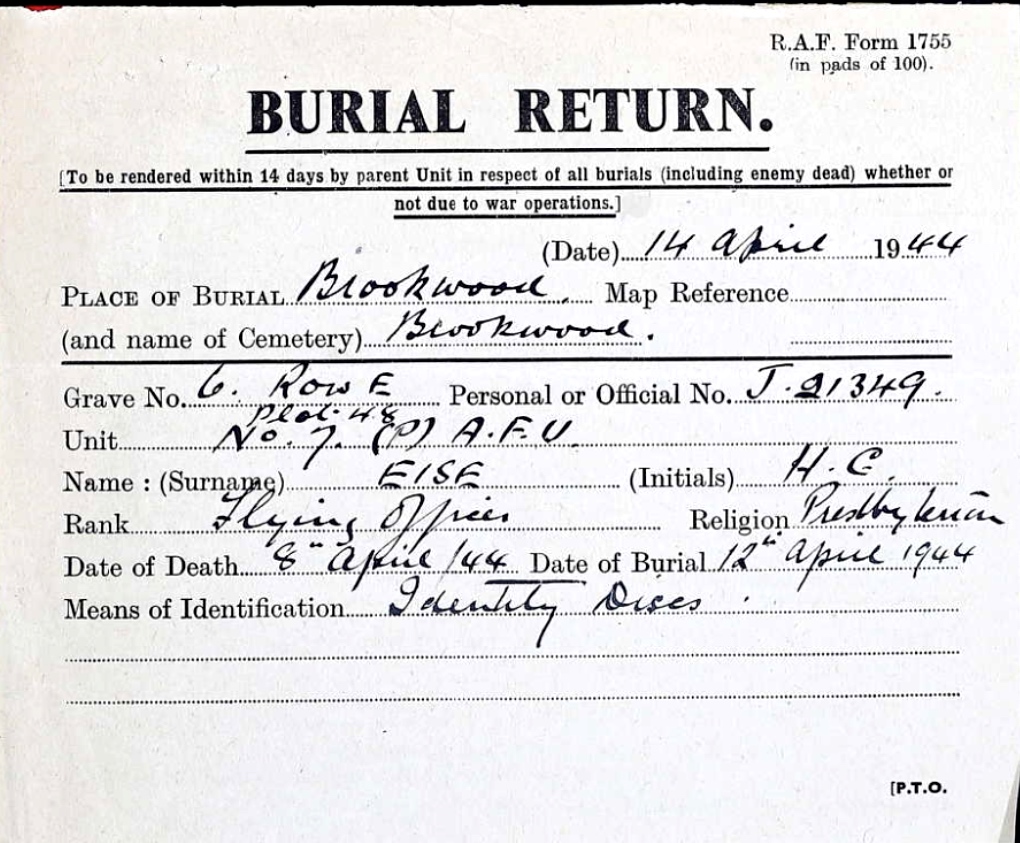 R.A.F. Form 1755
(in pads of 100).
BURIAL RETURN.
[To be rendered within 14 days by parent Unit in respect of all burials (including enemy dead) whether or
not due to war operations.]
(Date) 14 April 1944
PLACE OF BURIAL Brookwood. Map Reference
(and name of Cemetery) Brookwood.
Grave No. 6. Row E Personal or Official No. J.21349.
Plot. 48
Unit No. 7. (P) A.F.U.
Name : (Surname) EISE (Initials) H.C.
Rank Flying Officer Religion Presbyterian
Date of Death 8th April /44 Date of Burial 12th April 1944
Means of Identification Identity Discs.
[P.T.O.